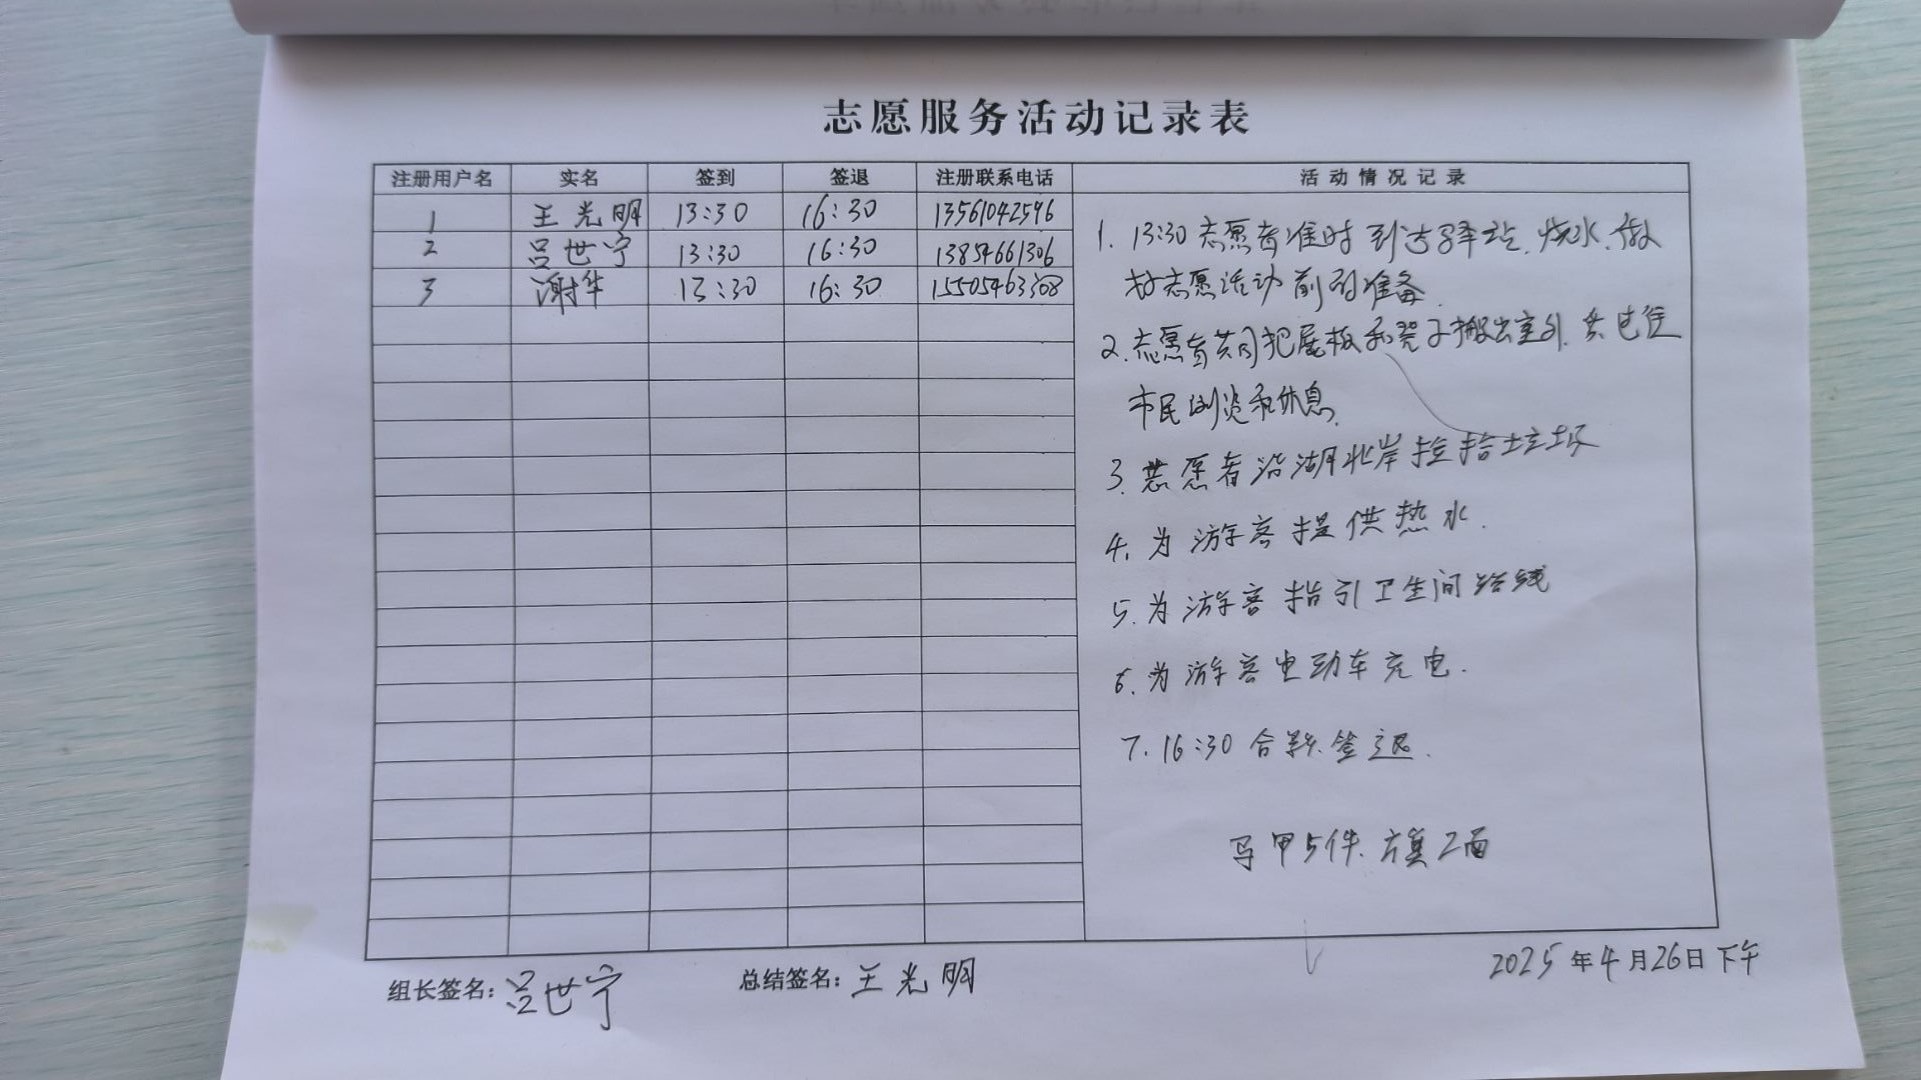 志愿服务活动记录表
注册用户名 实名 签到 签退 注册联系电话 活动情况记录
1 王光明 13:30 16:30 13561042596
2 吕世宁 13:30 16:30 13854661306
3 谢华 13:30 16:30 15505463308
1. 13:30志愿者准时到达驿站.烧水.做
好志愿活动前的准备.
2.志愿者共同把展板和凳子搬出室外.供过往
市民浏览和休息.
3.志愿者沿湖北岸捡拾垃圾
4.为游客提供热水.
5.为游客指引卫生间路线
6.为游客电动车充电.
7.16:30合影.签退.
马甲5件.旗2面
组长签名:吕世宁 总结签名:王光明 2025年4月26日下午